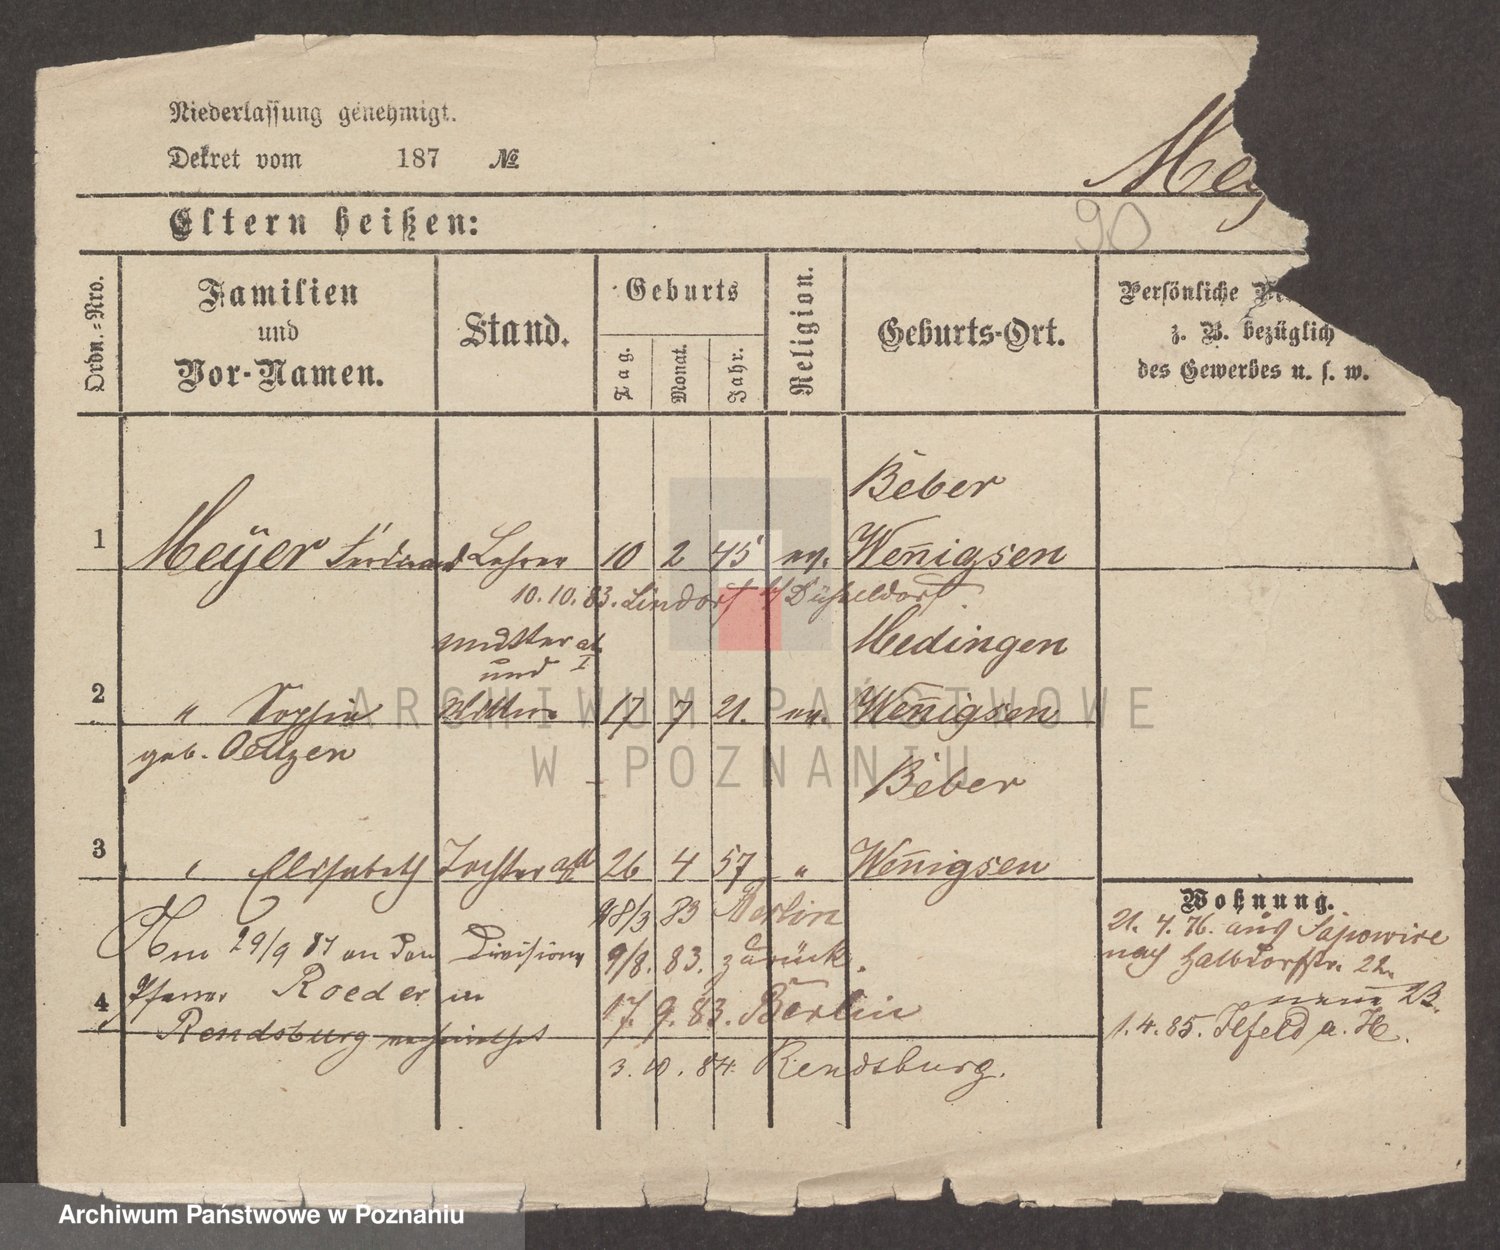 Niederlassung genehmigt.
Dekret vom 187 №
Mey
Eltern heißen:
90
Ordn.-Nro.
Familien
und
Vor-Namen.
Stand.
Geburts
Tag.
Monat.
Jahr.
Religion.
Geburts-Ort.
Persönliche
z. B. bezüglich
des Gewerbes u. s. w.
Beber
1 Meÿer Ferdinand Lehrer 10 2 45 ev. Wen̄igsen
10.10.83. Lindorf b/ Düsseldorf
Mutter ad
I
und
Medingen
2 " Sophie Wittwe 17 7 21. ev. Wen̄igsen
geb. Oelzen
Beber
3 " Elisabeth Tochter ad II 26 4 57 " Wen̄igsen
Wohnung.
28/3 83 Berlin
21. 4. 76. aus Sapowice
Am 29/9 84 an den Divisions
9/8. 83. zurück.
nach Halbdorfstr. 22.
Pfarrer Roeder in
4
17. 9. 83. Berlin
neue 23.
Rendsburg verheirathet
1. 4. 85. Ilfeld a. H.
3. 10. 84. Rendsburg.
ARCHIWUM PAŃSTWOWE
W POZNANIU
Archiwum Państwowe w Poznaniu